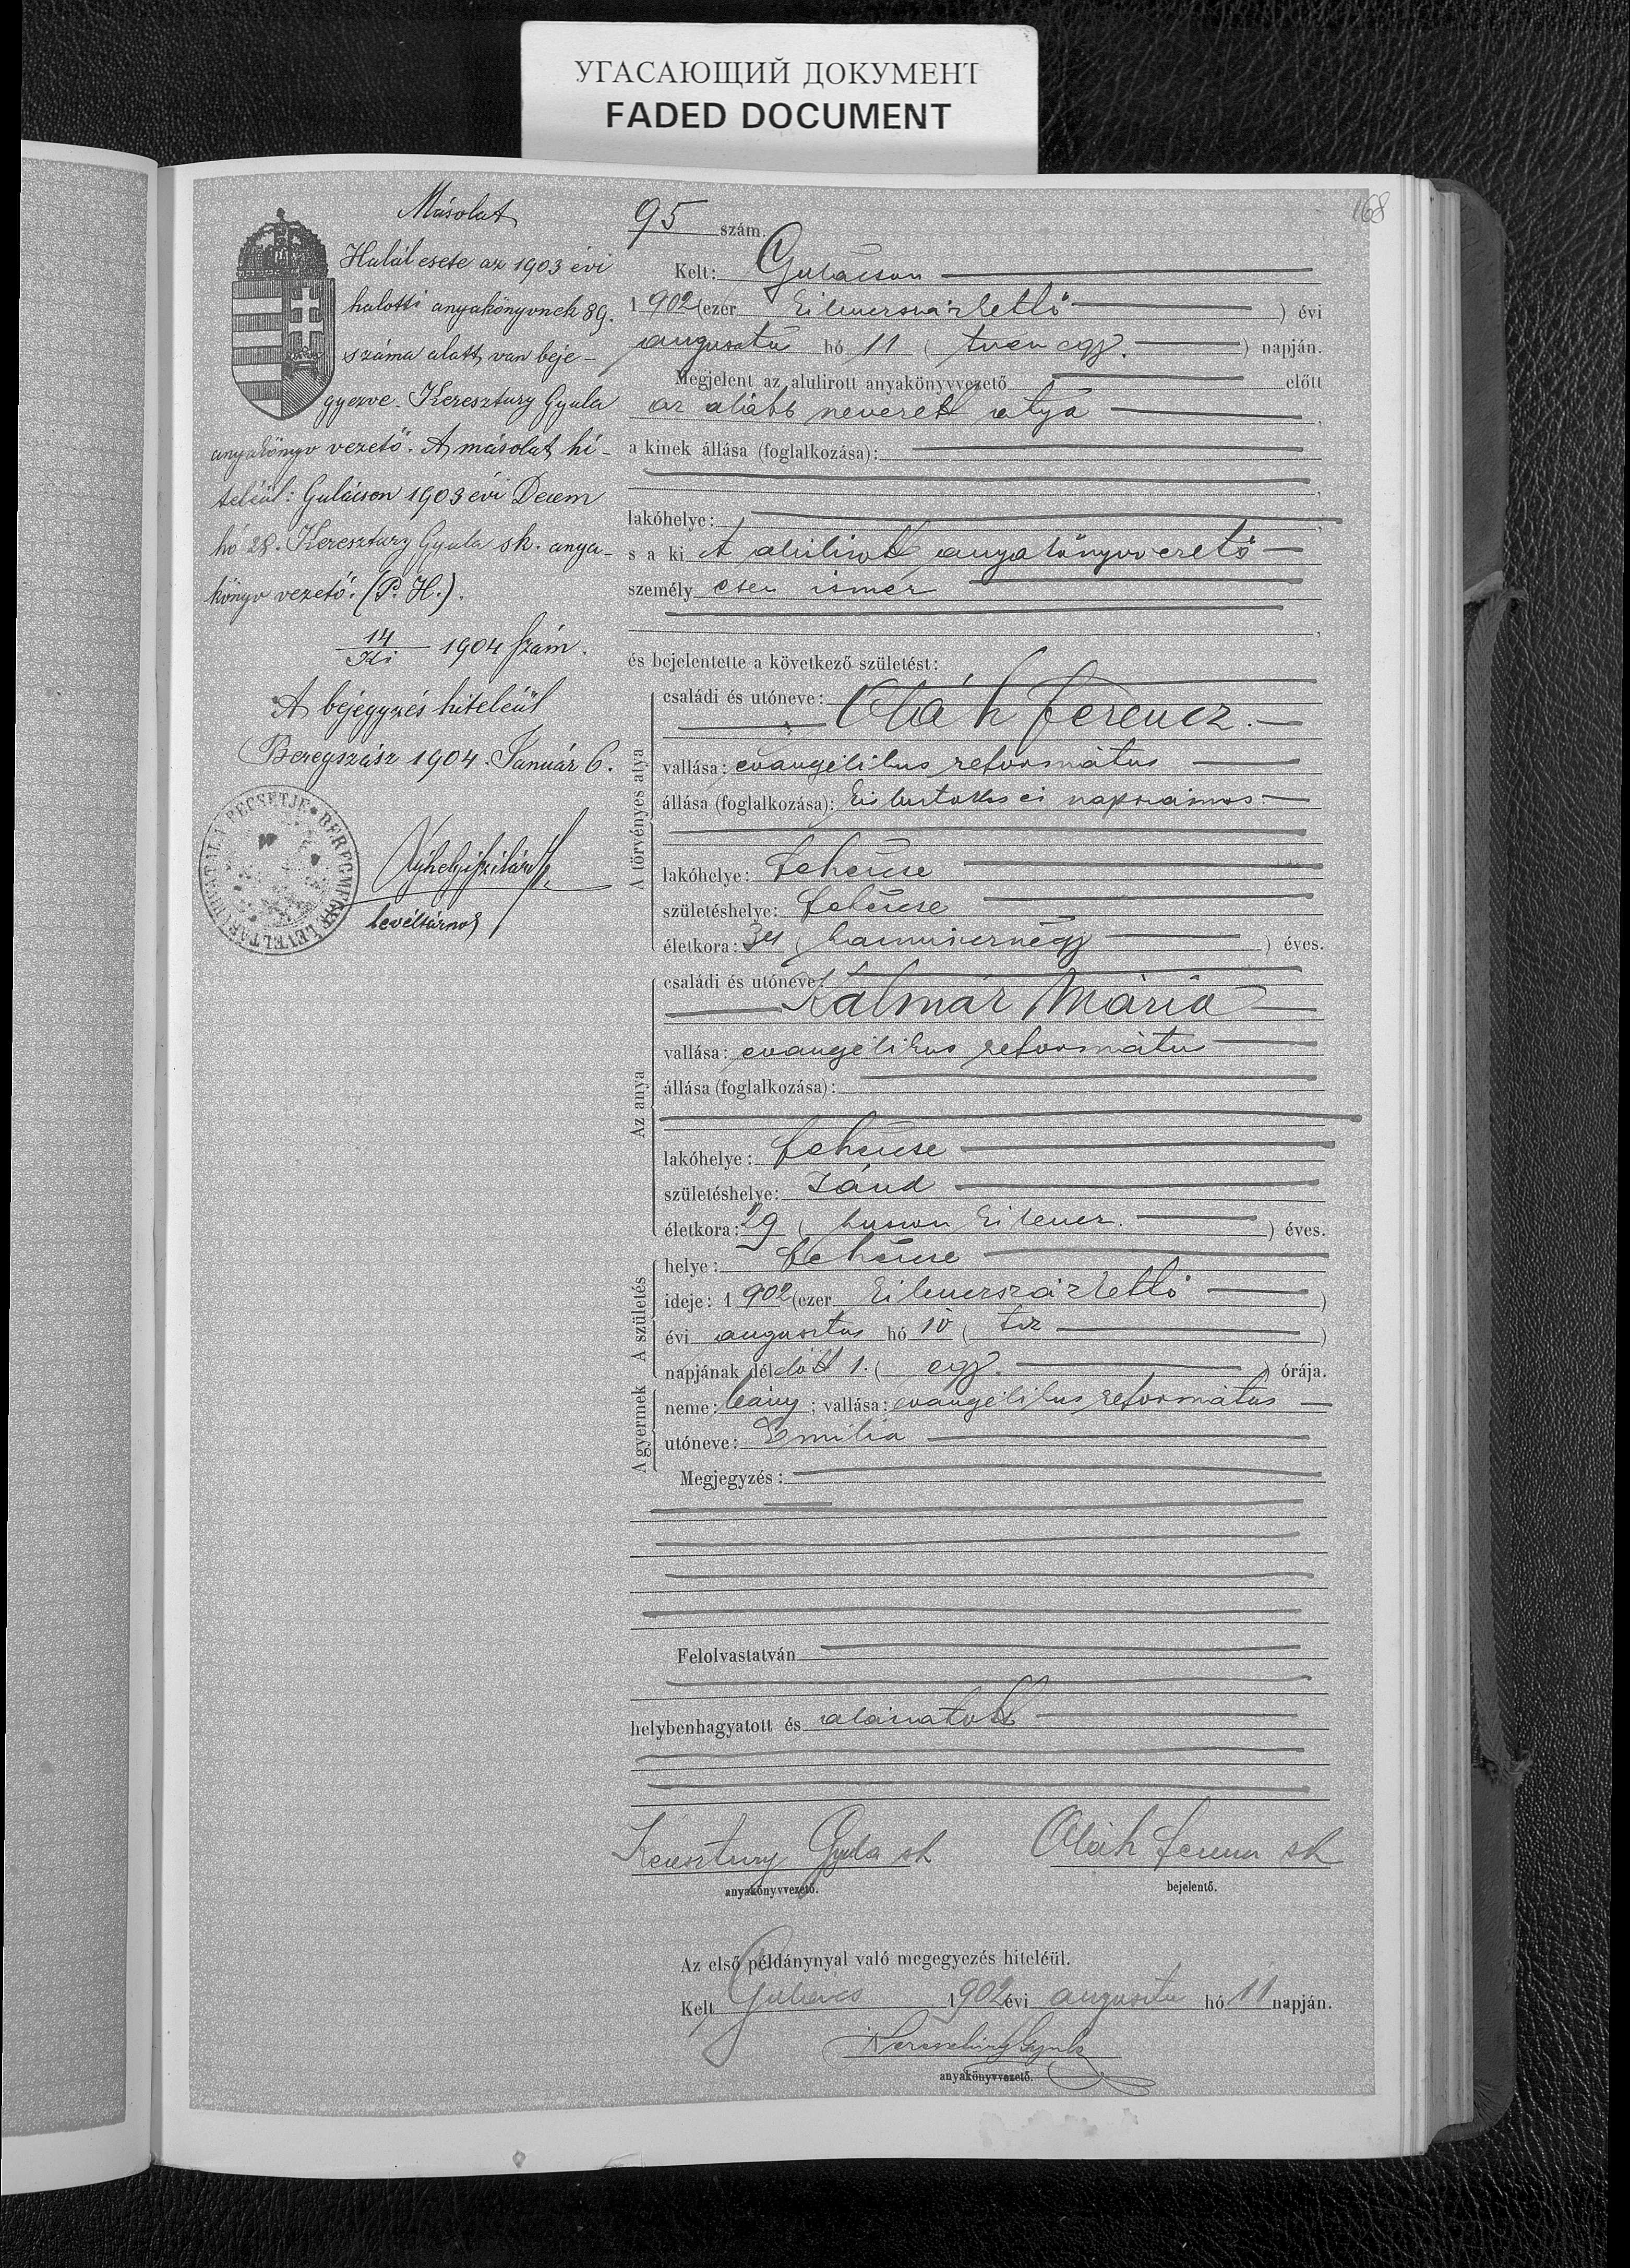 УГАСАЮЩИЙ ДОКУМЕНТ
FADED DOCUMENT
168
Másolat
Halálesete az 1903 évi
halotti anyakönyvnek 89.
száma alatt van beje-
gyezve. Keresztury Gyula
anyakönyv vezető. A másolat hi-
teléül: Gulácson 1903 évi Decem
hó 28. Keresztury Gyula sk. anya-
könyv vezető. (P. H.).
14
1904 szám.
A bejegyzés hiteléül
Beregszász 1904. Január 6.
levéltárnok
95 szám.
Kelt: Gulácson
1902 (ezer kilencszázkettő ) évi
augusztus hó 11 ( tizenegy. ) napján.
Megjelent az alulirott anyakönyvvezető előtt
az alább nevezett atya
a kinek állása (foglalkozása):
lakóhelye:
s a ki t alulirott anyakönyvvezető
személyesen ismer
és bejelentette a következő születést:
A törvényes atya
családi és utóneve:
Oláh Ferencz.
vallása: evangélikus református
állása (foglalkozása): kisbirtokos és napszámos.
lakóhelye: Fehércse
születéshelye: Fehércse
életkora: 34 ( harmincznégy ) éves.
Az anya
családi és utóneve:
Kalmár Mária
vallása: evangélikus református
állása (foglalkozása):
lakóhelye: Fehércse
születéshelye: Jánd
életkora: 29 ( huszonkilencz. ) éves.
A születés
helye: Fehércse
ideje: 1902 (ezer kilencszázkettő )
évi augusztus hó 10 ( tíz )
napjának délelőtt 1. ( egy. ) órája.
A gyermek
neme: leány; vallása: evangélikus református
utóneve: Emilia
Megjegyzés:
Felolvastatván
helybenhagyatott és aláiratott
Keresztury Gyula sk Oláh Ferencz sk
anyakönyvvezető. bejelentő.
Az első példánynyal való megegyezés hiteléül.
Kelt Gulács 1902 évi augusztus hó 11 napján.
Keresztury Gyula
anyakönyvvezető.